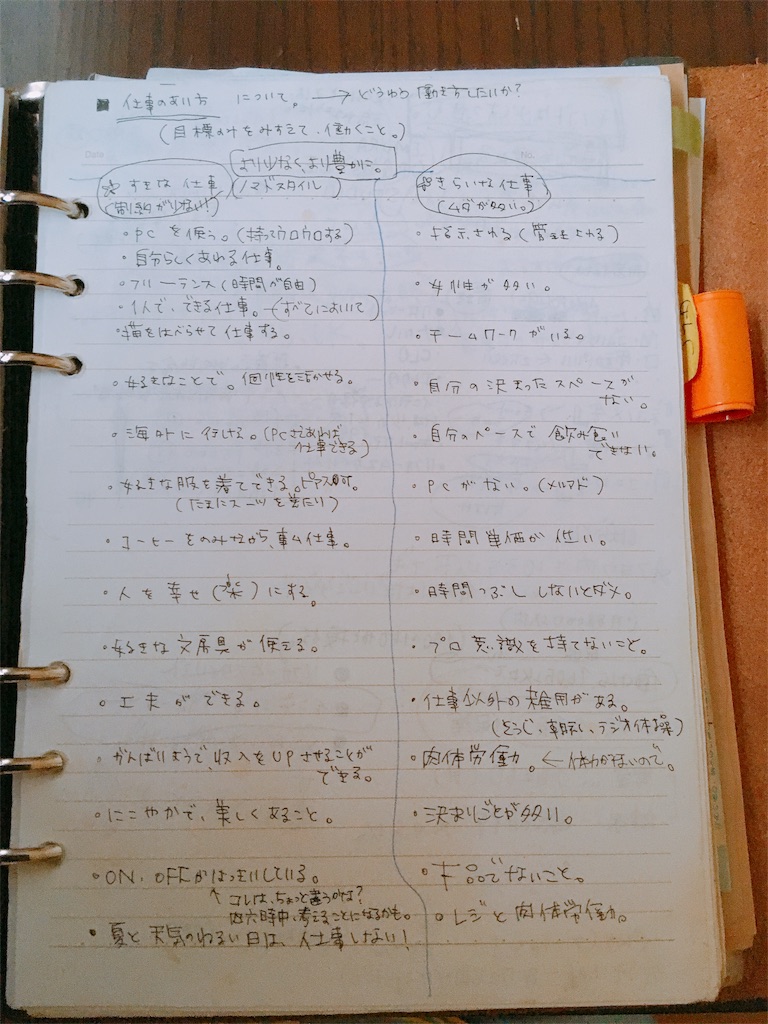 ■ 仕事のあり方 について。→ どうゆう働き方したいか?
(目標のみをみすえて、働くこと。)
Date
No.
より少なく、より豊かに。
☆ すきな仕事 (ノマドスタイル)
(制約が少ない!)
・PCを使う。(持ってウロウロする)
・自分らしくあれる仕事。
・フリーランス(時間が自由)
・1人で、できる仕事。(すべてにおいて)
・猫をはべらせて仕事する。
・好きなことで。個性を活かせる。
・海外に行ける。(PCさえあれば
仕事できる)
・好きな服を着てできる。ピアス可。
(たまにスーツを着たり)
・コーヒーをのみながら、仕事。
・人を幸せ(楽)にする。
・好きな文房具が使える。
・工夫ができる。
・がんばりようで、収入をUPさせることが
できる。
・にこやかで、美しくあること。
・ON、OFFがはっきりしている。
↑コレは、ちょっと違うかな?
四六時中、考えることになるかも。
・夏と天気のわるい日は、仕事しない!
きらいな仕事
(ムダが多い。)
・指示される(管理される)
・女性が多い。
・チームワークがいる。
・自分の決まったスペースが
ない。
・自分のペースで飲み食い
できない。
・PCがない。(メルアド)
・時間単価が低い。
・時間つぶししないとダメ。
・プロ意識を持てないこと。
・仕事以外の雑用がある。
(そうじ、朝、ラジオ体操)
・肉体労働。←体力がないので。
・決まりごとが多い。
・上品でないこと。
・レジと肉体労働。